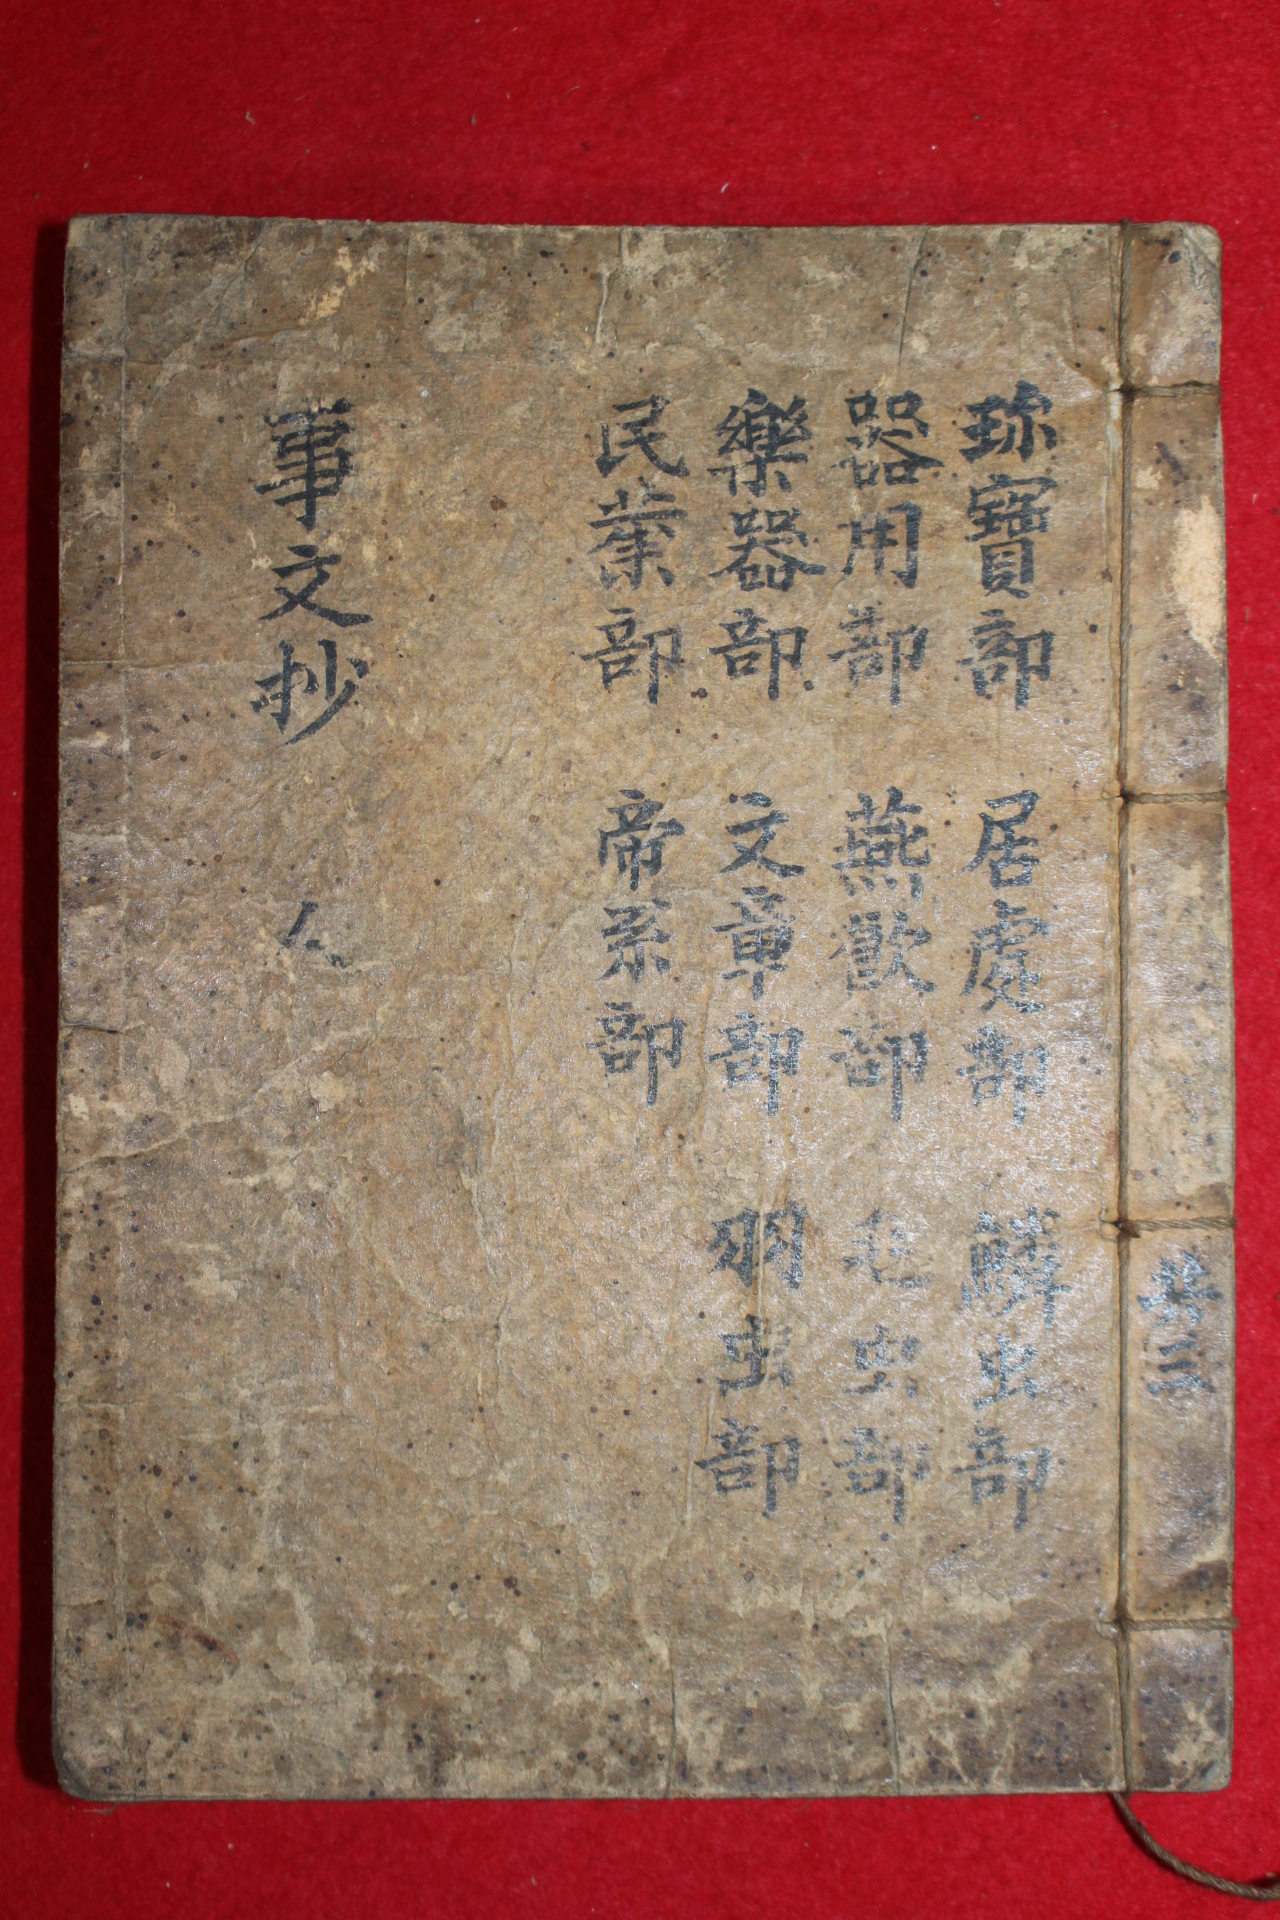 共三
珎寶部 居處部 鱗虫部
器用部 燕飮部 毛虫部
樂器部 文章部 羽虫部
民業部 帝系部
事文抄 人